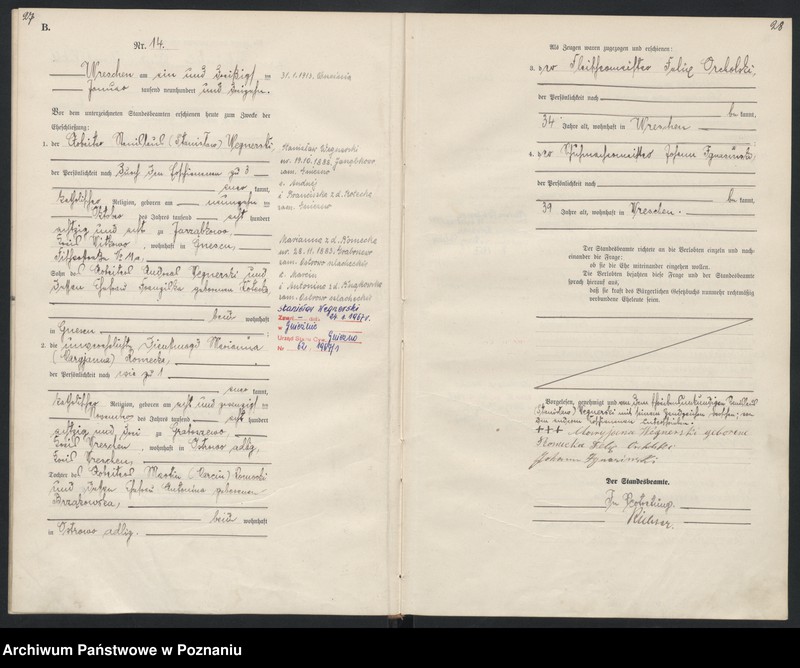 27
B.
Nr. 14.
Wreschen am ein und dreißigsten
Januar tausend neunhundert und dreizehn.
Vor dem unterzeichneten Standesbeamten erschienen heute zum Zwecke der
Eheschließung:
1. der Arbeiter Stanislaus (Stanisław) Wegnerski,
der Persönlichkeit nach durch den Erschienenen zu 3
kannt,
katholischer Religion, geboren am neunzehnten
Oktober des Jahres tausend acht hundert
achtzig und acht zu Jarząbkowo,
Kreis Witkowo, wohnhaft in Gnesen,
Sohn des Arbeiters Andreas Wegnerski und
dessen Ehefrau Franziska geborenen
beide wohnhaft
in Gnesen
2. die unverehelichte Dienstmagd Marianna
(Maryjanna) Kromecka,
der Persönlichkeit nach wie zu 1
kannt,
katholischer Religion, geboren am acht und zwanzigsten
November des Jahres tausend acht hundert
achtzig und drei zu Grabowo,
Kreis Wreschen, wohnhaft in Ostrowo adlig,
Kreis Wreschen,
Tochter des Arbeiters Martin (Marcin) Kromecki
und dessen Ehefrau Antonina geborenen
beide wohnhaft
in Ostrowo adlig.
31.1.1913. Września
Stanisław Wegnerski
ur. 19.10.1888 Jarząbkowo
zam. Gniezno
s. Andrzej
i Franciszka z d.
zam. Gniezno
Marianna z d. Kromecka
ur. 28.11.1883 Grabowo
zam. Ostrowo szlacheckie
c. Marcin
i Antonina z d.
zam. Ostrowo szlacheckie
Stanisław Wegnerski
Zmarł dnia 24.1.1967 r.
w Gnieźnie
Urząd Stanu Cyw. Gniezno
Nr 62/1967/1
28
Als Zeugen waren zugezogen und erschienen:
3. der Fleischermeister Felix Orcholski,
der Persönlichkeit nach
be kannt,
34 Jahre alt, wohnhaft in Wreschen
4. der Schuhmachermeister Johann
der Persönlichkeit nach
be kannt,
39 Jahre alt, wohnhaft in Wreschen.
Der Standesbeamte richtete an die Verlobten einzeln und nach-
einander die Frage:
ob sie die Ehe miteinander eingehen wollen.
Die Verlobten bejahten diese Frage und der Standesbeamte
sprach hierauf aus,
daß sie kraft des Bürgerlichen Gesetzbuchs nunmehr rechtmäßig
verbundene Eheleute seien.
Vorgelesen, genehmigt und von dem schreibunkundigen Stanislaus
(Stanisław) Wegnerski mit seinem Handzeichen versehen, von
den anderen Erschienenen unterschrieben.
+++ Maryjanna Wegnerski geborene
Kromecka Felix Orcholski
Johann
Der Standesbeamte.
In Vertretung.
Archiwum Państwowe w Poznaniu